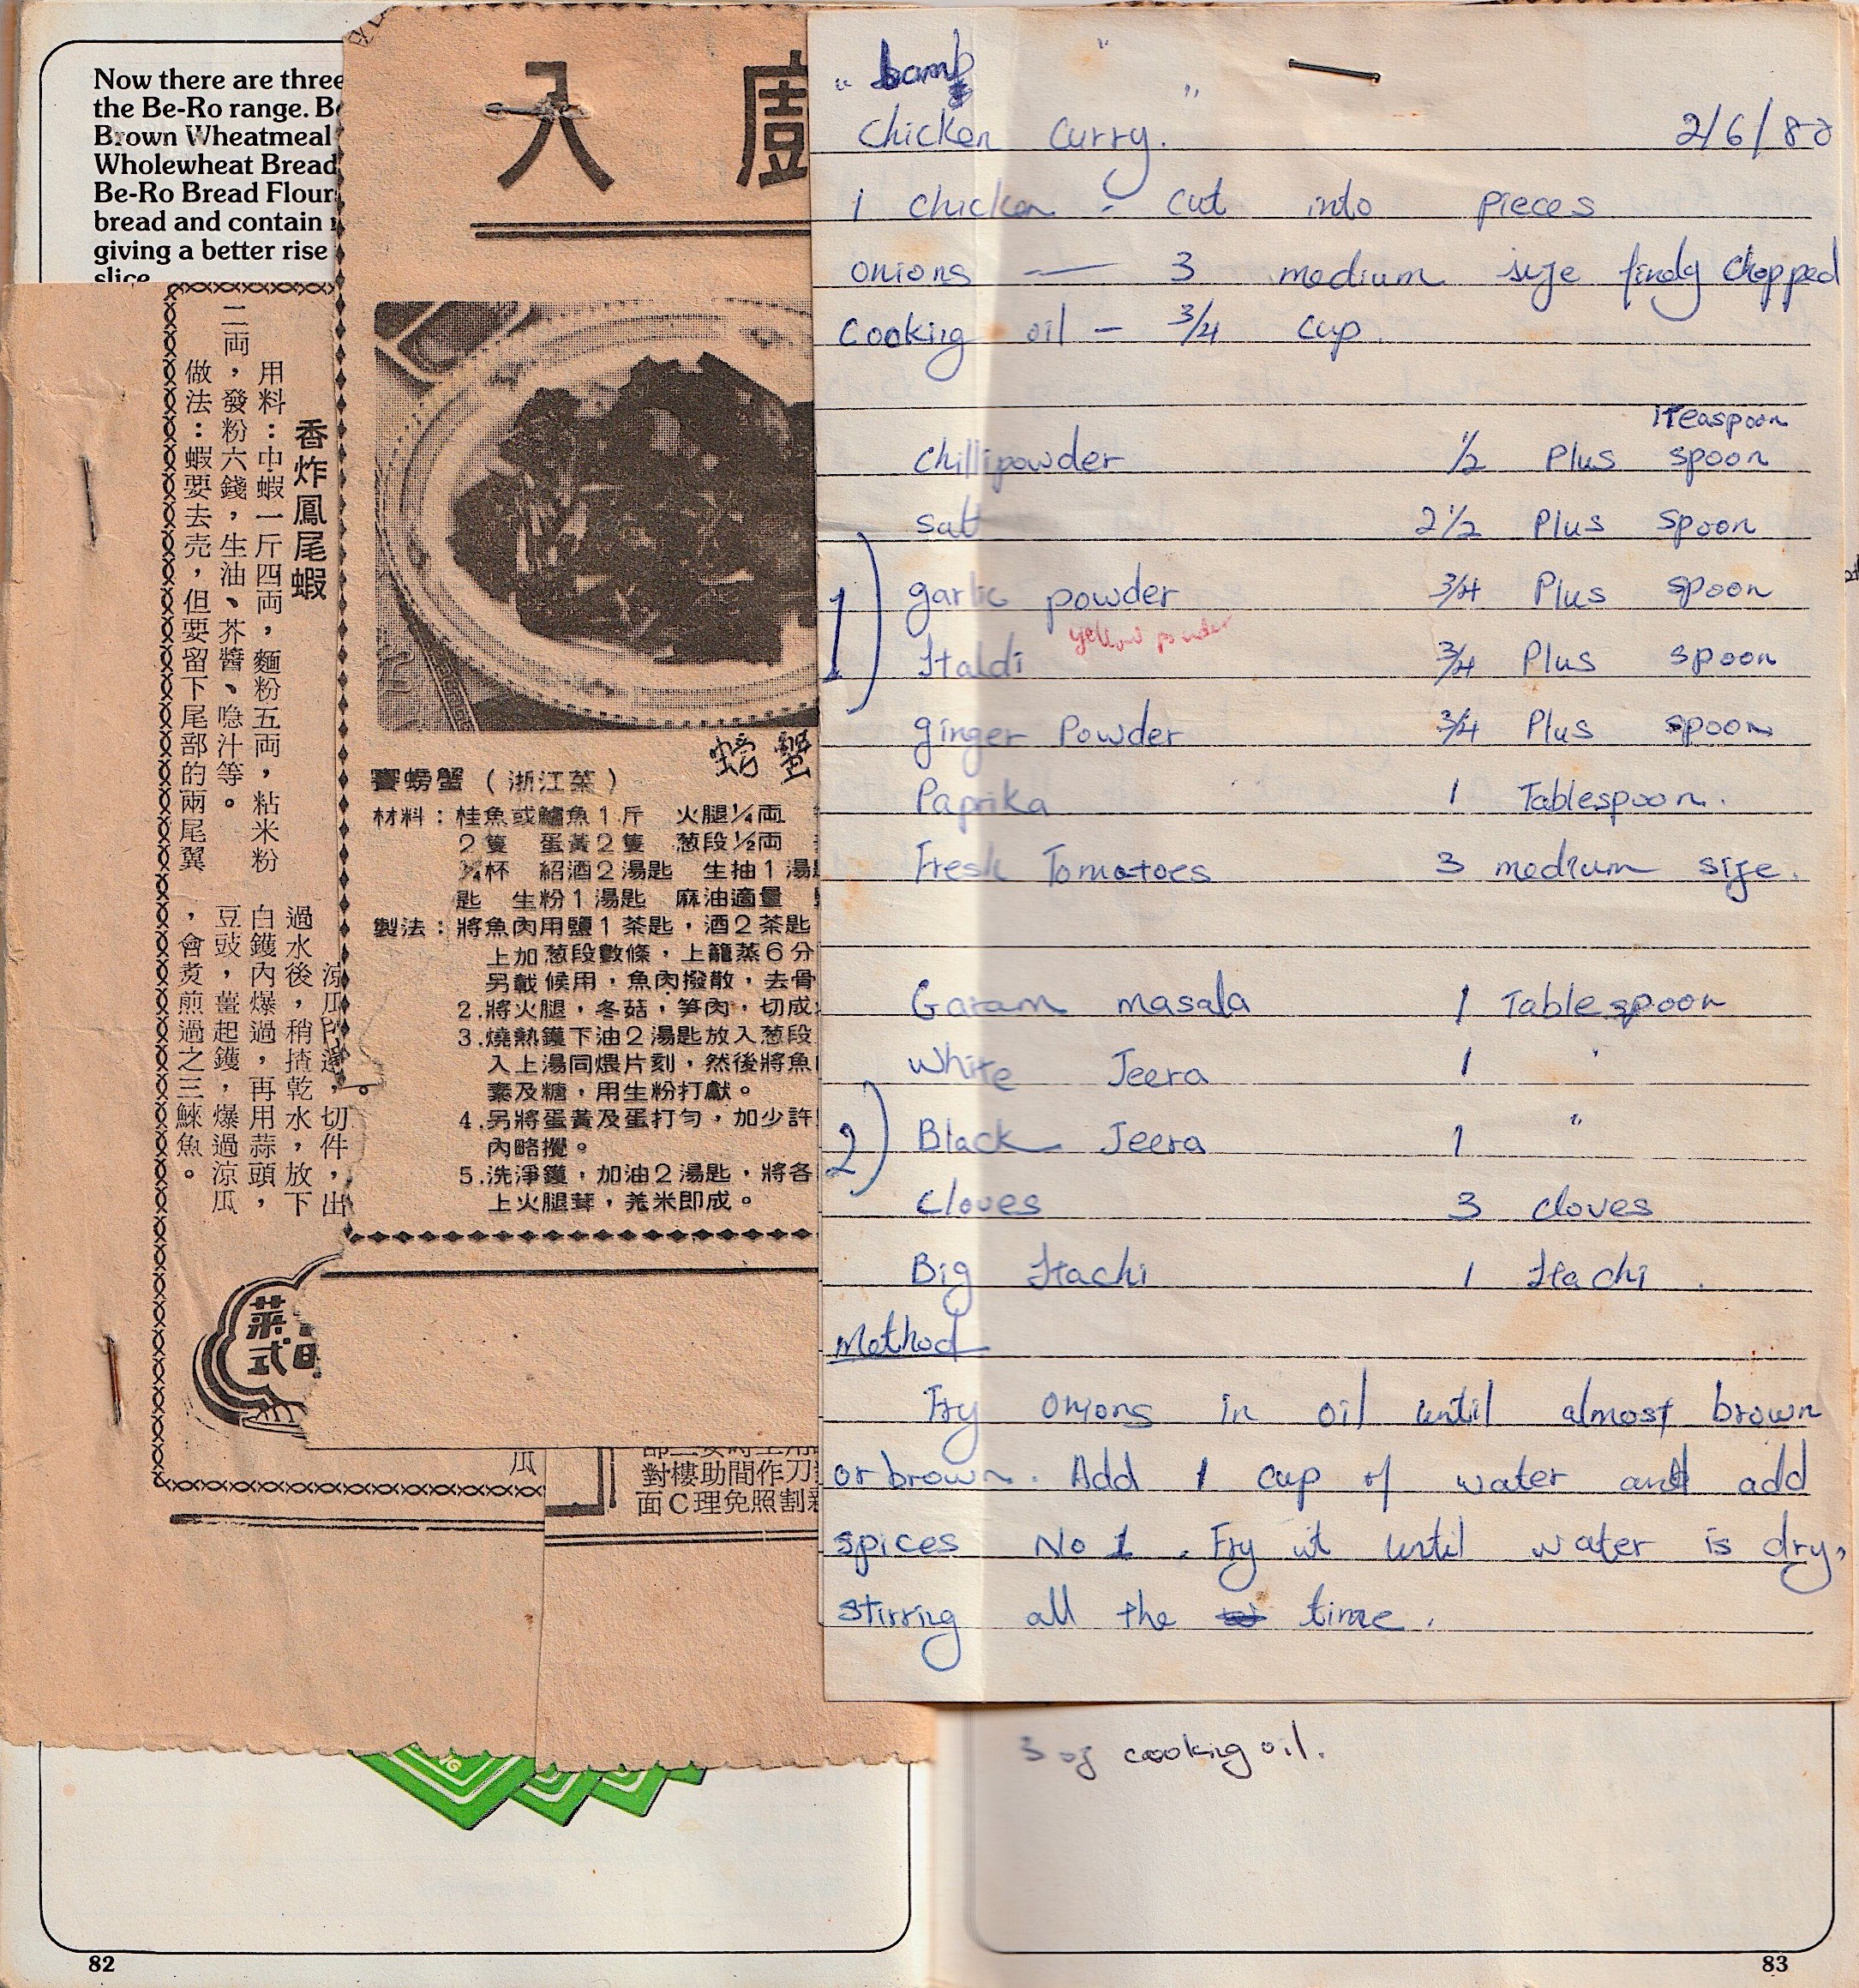 Now there are three
the Be-Ro range.
Brown Wheatmeal
Wholewheat Bread
Be-Ro Bread Flour
bread and contain
giving a better rise
slice
香炸鳳尾蝦
用料：中蝦一斤四両，麵粉五両，粘米粉
二両，發粉六錢，生油、芥醬、喼汁等。
做法：蝦要去壳，但要留下尾部的兩尾翼
切件，出
過水後，稍揸乾水，放下
白鑊內爆過，再用蒜頭，
豆豉，薑起鑊，爆過涼瓜
，會煑煎過之三鯠魚。
菜
式
瓜
入 廚
螃蟹
賽螃蟹（浙江菜）
材料：桂魚或鱸魚1斤 火腿¼両
2隻 蛋黃2隻 葱段½両
杯 紹酒2湯匙 生抽1湯
匙 生粉1湯匙 麻油適量
製法：將魚肉用鹽1茶匙，酒2茶匙
上加葱段數條，上籠蒸6分
另載候用，魚肉撥散，去骨
2.將火腿，冬菇，笋肉，切成
3.燒熱鑊下油2湯匙放入葱段
入上湯同煨片刻，然後將魚
素及糖，用生粉打獻。
4.另將蛋黃及蛋打勻，加少許
內略攪。
5.洗淨鑊，加油2湯匙，將各
上火腿茸，羌米即成。
對樓助間作刀
面C理免照割
" lamb "
Chicken Curry. 2/6/80
1 chicken - cut into pieces
onions — 3 medium size finely chopped
Cooking oil - 3/4 cup.
1 Teaspoon
Chillipowder 1/2 Plus spoon
Salt 2 1/2 Plus spoon
1) garlic powder 3/4 Plus spoon
yellow powder
Haldi 3/4 Plus spoon
ginger Powder 3/4 Plus spoon
Paprika 1 Tablespoon.
Fresh Tomatoes 3 medium size.
Garam masala 1 Tablespoon
White Jeera 1 "
2) Black Jeera 1 "
Cloves 3 cloves
Big Hachi 1 Hachi.
Method
Fry onions in oil until almost brown
or brown. Add 1 cup of water and add
spices No 1. Fry it until water is dry,
stirring all the time.
3 oz cooking oil.
82
83